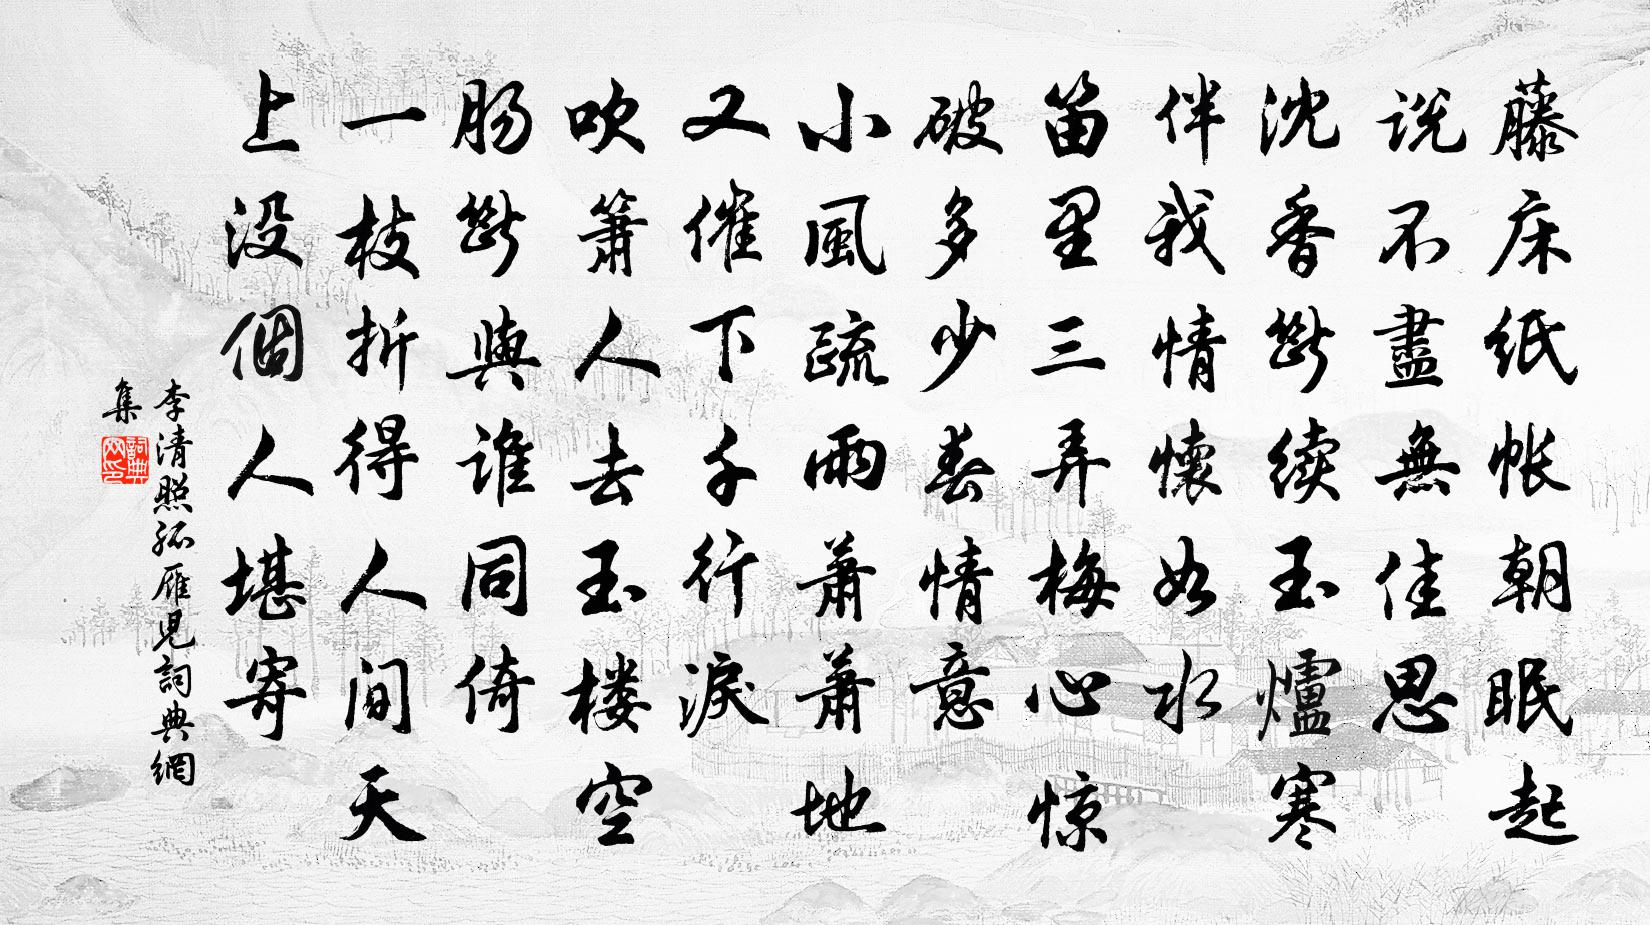 藤床纸帐朝眠起
说不盡無佳思
沈香斷续玉爐寒
伴我情懷如水
笛里三弄梅心惊
破多少春情意
小風疏雨蕭蕭地
又催下千行淚
吹簫人去玉楼空
肠斷與谁同倚
一枝折得人间天
上没個人堪寄
李清照孤雁兒詞典網
集
詞典網印